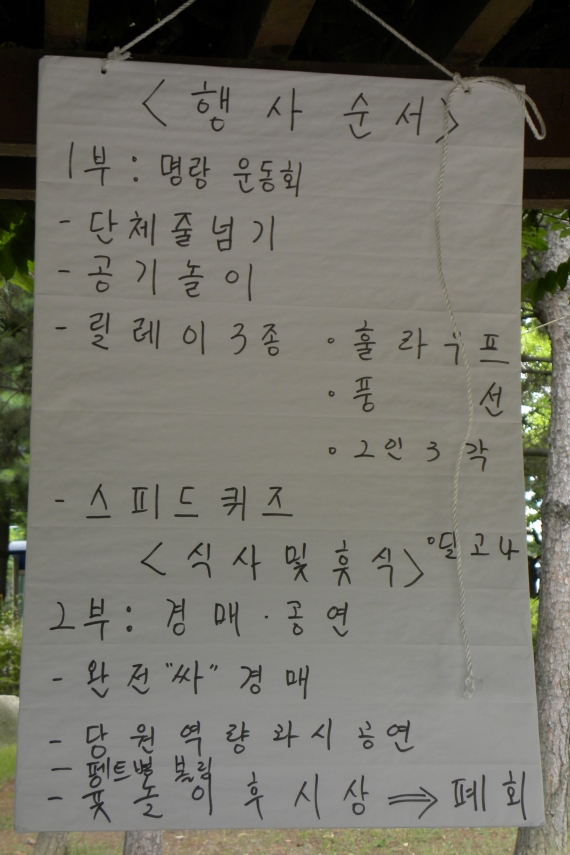 <행사 순서>
1부: 명랑 운동회
- 단체줄넘기
- 공기놀이
- 릴레이3종 ∘ 훌라우프
· 풍 선
∘ 2인 3각
- 스피드퀴즈
<식사 및 휴식> ∘달고나
2부: 경매 · 공연
- 완전 "싸" 경매
- 당원역량과시공연
- 펫트병 볼링
- 윷놀이 후 시상 ⇒ 폐회